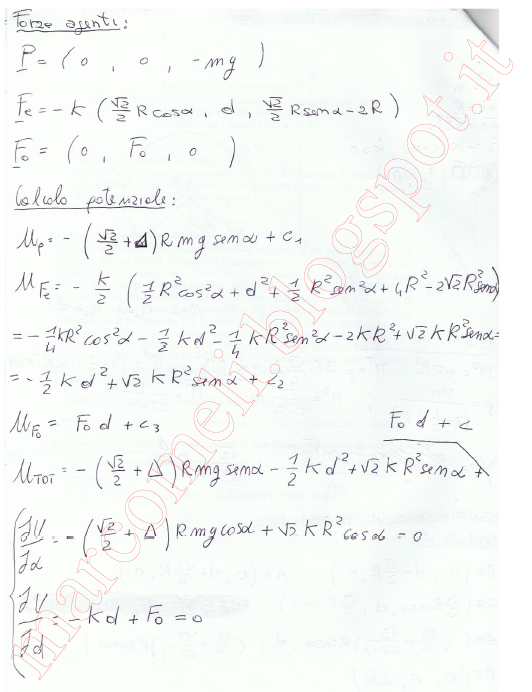 Forze agenti:
P = ( 0 , 0 , -mg )
Fe = - k ( √2/2 R cosα , d , √2/2 R senα - 2R )
F0 = ( 0 , F0 , 0 )
Calcolo potenziale:
Up = - ( √2/2 + Δ ) R mg senα + c1
UFe = - k/2 ( 1/2 R² cos²α + d² + 1/2 R² sen²α + 4R² - 2√2 R² senα )
= - 1/4 kR² cos²α - 1/2 kd² - 1/4 kR² sen²α - 2kR² + √2 kR² senα =
= - 1/2 kd² + √2 kR² senα + c2
UF0 = F0 d + c3
F0 d + c
UTOT = - ( √2/2 + Δ ) R mg senα - 1/2 kd² + √2 kR² senα +
∂U/∂α = - ( √2/2 + Δ ) R mg cosα + √2 kR² cosα = 0
∂U/∂d = - kd + F0 = 0
marcomeli.blogspot.it